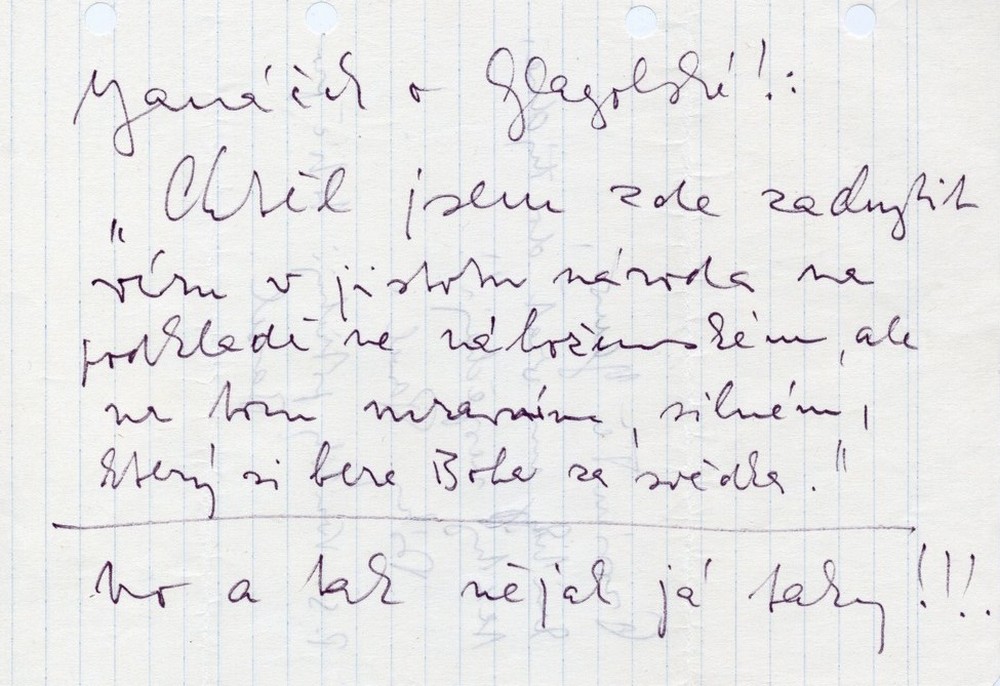 Janáček o Glagolské!:
„Chtěl jsem zde zachytit
víru v jistotu národa na
podkladě ne náboženském, ale
na tom mravním, silném,
který si bere Boha za svědka."
No a tak nějak já taky!!!.